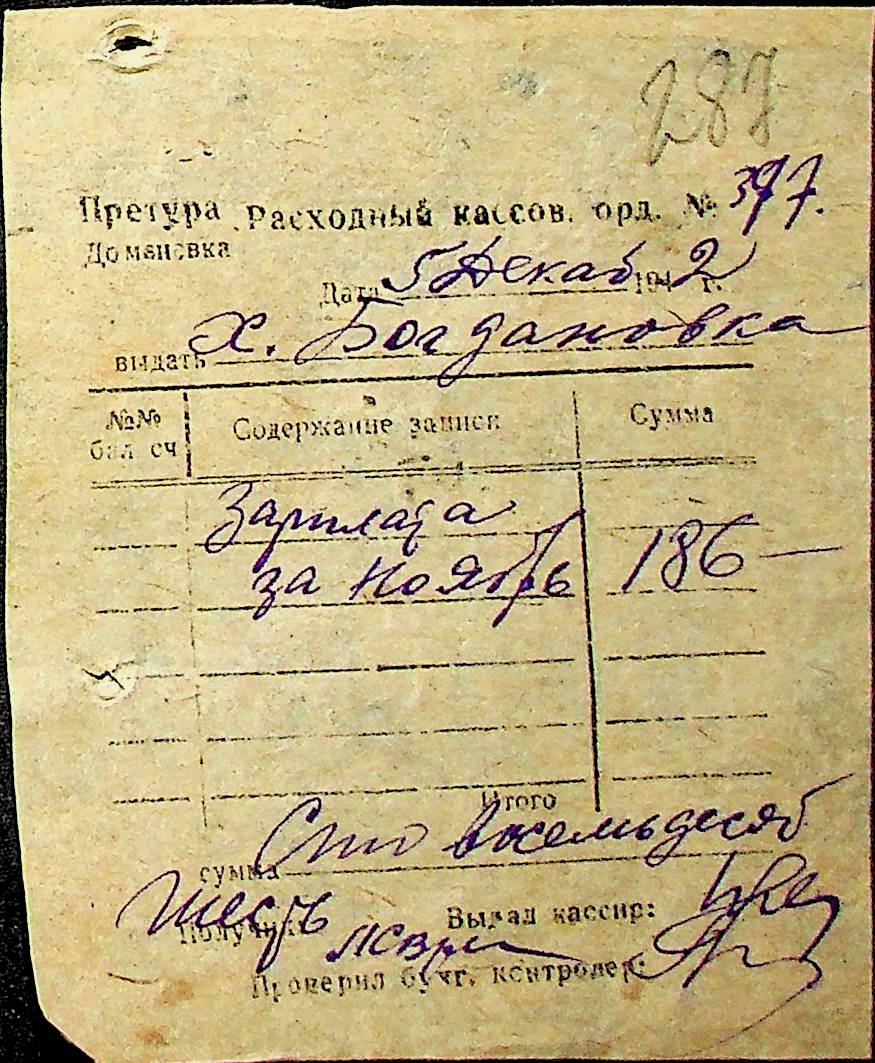 287
Претура Расходный кассов. орд. № 377.
Доманевка
Дата 5 Декаб 1942 г.
выдать Х. Богдановка
№№ бал сч Содержание записи Сумма
Зарплата
за ноябрь 186 —
Итого
сумма Сто восемьдесят
шесть
Получил Выдал кассир:
Проверил бухг. контролер: